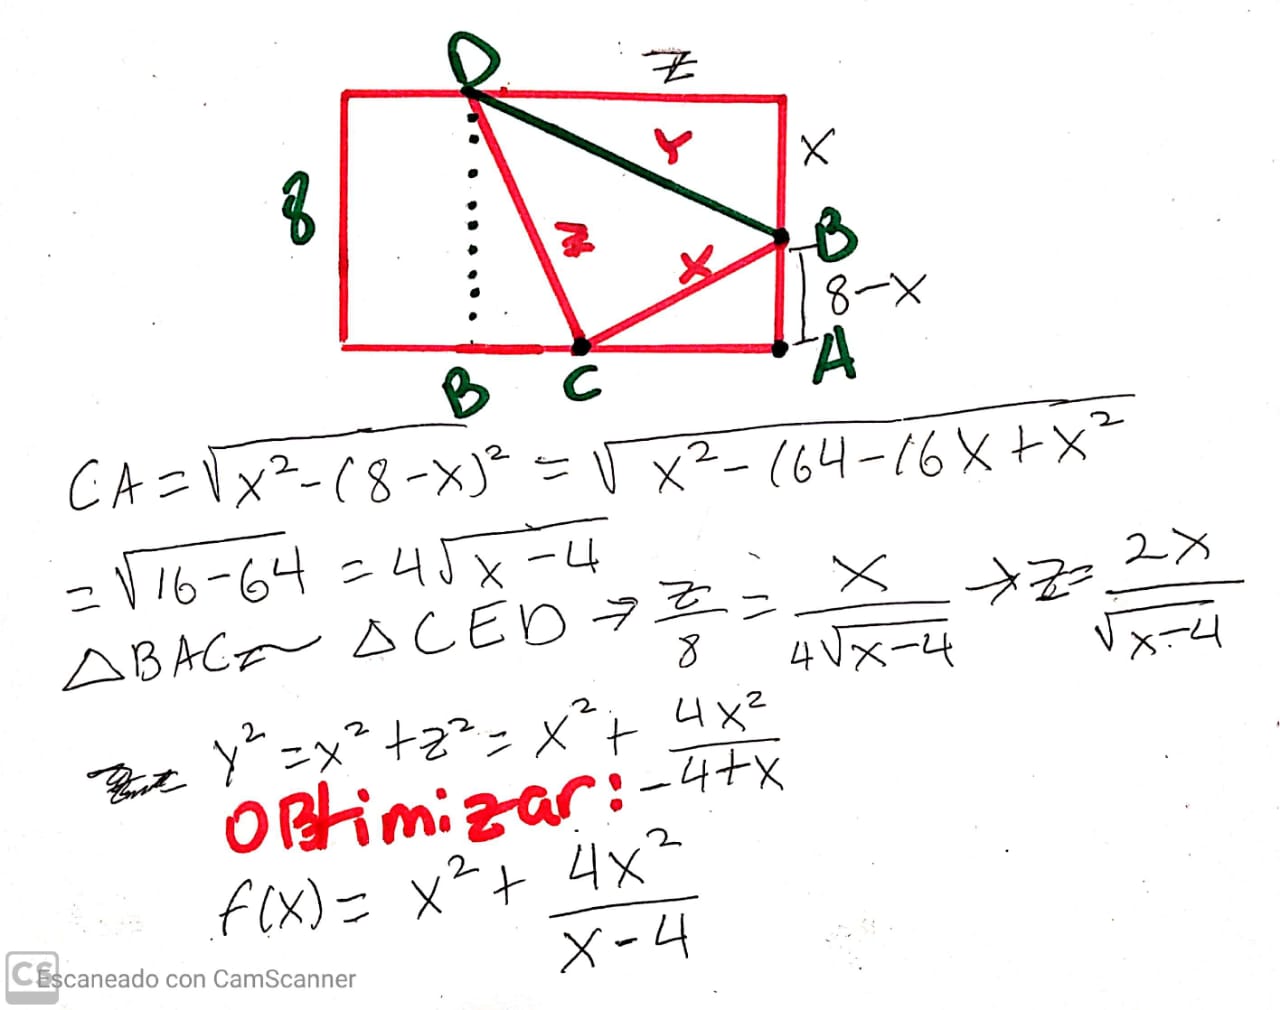 D
z
Y
X
8
B
z
X
8-X
A
B
C
CA=√x²-(8-x)² = √x²-(64-16X+x²
=√16-64 =4√x-4
△BAC~ △CED → z/8 = x/4√x-4 → z= 2x/√x-4
y²=x²+z²= x²+ 4x²/-4+x
OBtimizar:
f(x)= x²+ 4x²/x-4
CS Escaneado con CamScanner